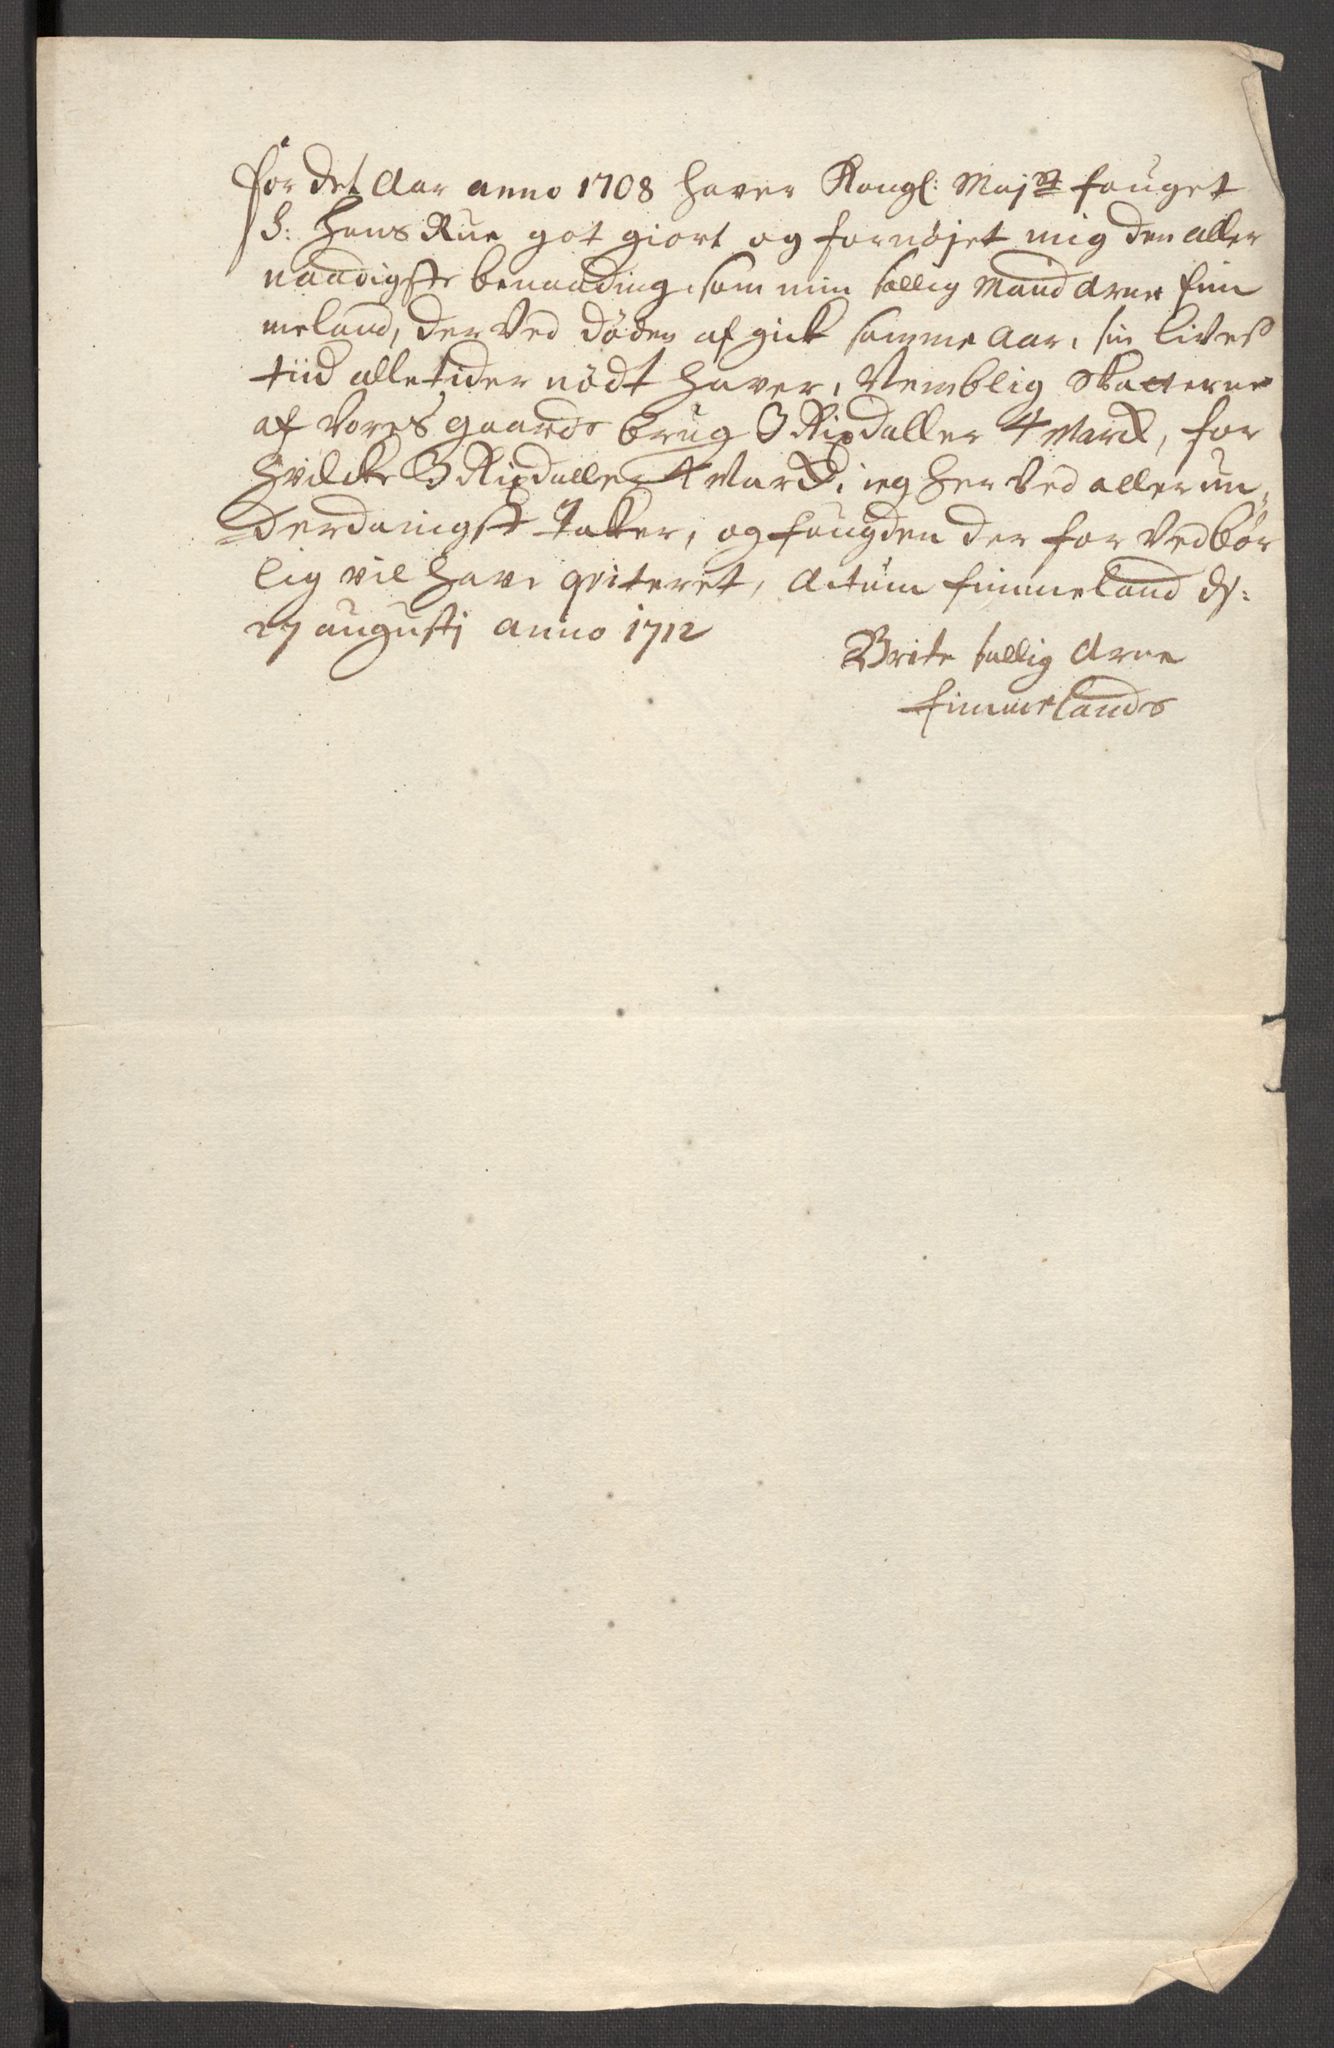 for det Aar anno 1708 haver Kongl: Majst fouget
S: Hans Rue got giort og fornøjet mig den aller
naadigste benaading, som min sallig Mand Arne Fim
meland, der ved døden af gick samme Aar, sin lives
tiid alletider nödt haver, Nemblig Skatterne
af Vores gaards brug 3 Rixdaller 4 Marck, for
hvilcke 3 Rixdaller 4 Marck, ieg her ved allerun,
derdaningst taker, og fougden der for vedbør
lig vil have qviteret, Actum Fimmeland d:
27 augustj anno 1712
Brite sallig Arne
Fimmelands